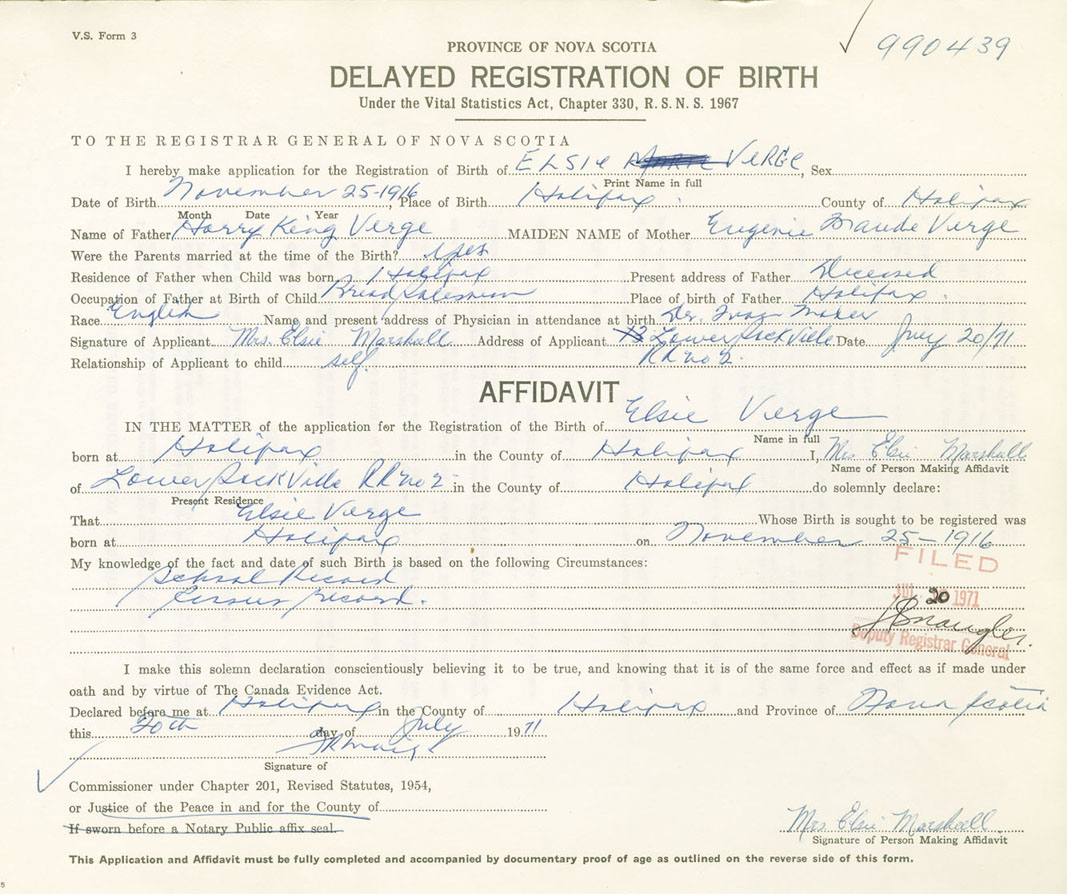 V.S. Form 3
990439
PROVINCE OF NOVA SCOTIA
DELAYED REGISTRATION OF BIRTH
Under the Vital Statistics Act, Chapter 330, R.S.N.S. 1967
TO THE REGISTRAR GENERAL OF NOVA SCOTIA
I hereby make application for the Registration of Birth of ELSIE VERGE, Sex
Print Name in full
Date of Birth November 25-1916, Place of Birth Halifax. County of Halifax
Month Date Year
Name of Father Harry King Verge MAIDEN NAME of Mother Eugenie Maude Verge
Were the Parents married at the time of the Birth? yes
Residence of Father when Child was born Halifax Present address of Father Deceased
Occupation of Father at Birth of Child Bread Salesman Place of birth of Father Halifax.
Race English Name and present address of Physician in attendance at birth Dr.
Signature of Applicant Mrs. Elsie Marshall Address of Applicant Lower Sackville Date July 20/71
RR no 2.
Relationship of Applicant to child self.
AFFIDAVIT
IN THE MATTER of the application for the Registration of the Birth of Elsie Verge
Name in full
born at Halifax in the County of Halifax I, Mrs Elsie Marshall
Name of Person Making Affidavit
of Lower Sackville RR no 2 in the County of Halifax do solemnly declare:
Present Residence
That Elsie Verge Whose Birth is sought to be registered was
born at Halifax on November 25-1916
My knowledge of the fact and date of such Birth is based on the following Circumstances:
School Record
Census record.
FILED
JUL 20 1971
Deputy Registrar General
I make this solemn declaration conscientiously believing it to be true, and knowing that it is of the same force and effect as if made under
oath and by virtue of The Canada Evidence Act.
Declared before me at Halifax in the County of Halifax and Province of Nova Scotia
this 20th day of July 1971
Signature of
Commissioner under Chapter 201, Revised Statutes, 1954,
or Justice of the Peace in and for the County of
If sworn before a Notary Public affix seal.
Mrs Elsie Marshall
Signature of Person Making Affidavit
This Application and Affidavit must be fully completed and accompanied by documentary proof of age as outlined on the reverse side of this form.
5